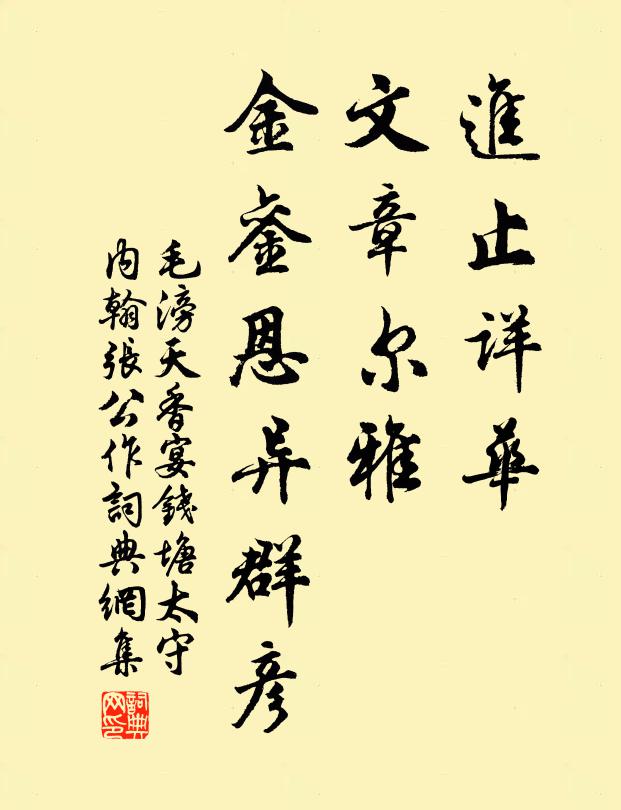 進止详華
文章尔雅
金銮恩异群彦
毛滂天香宴錢塘太守
内翰張公作詞典網集
詞典网印